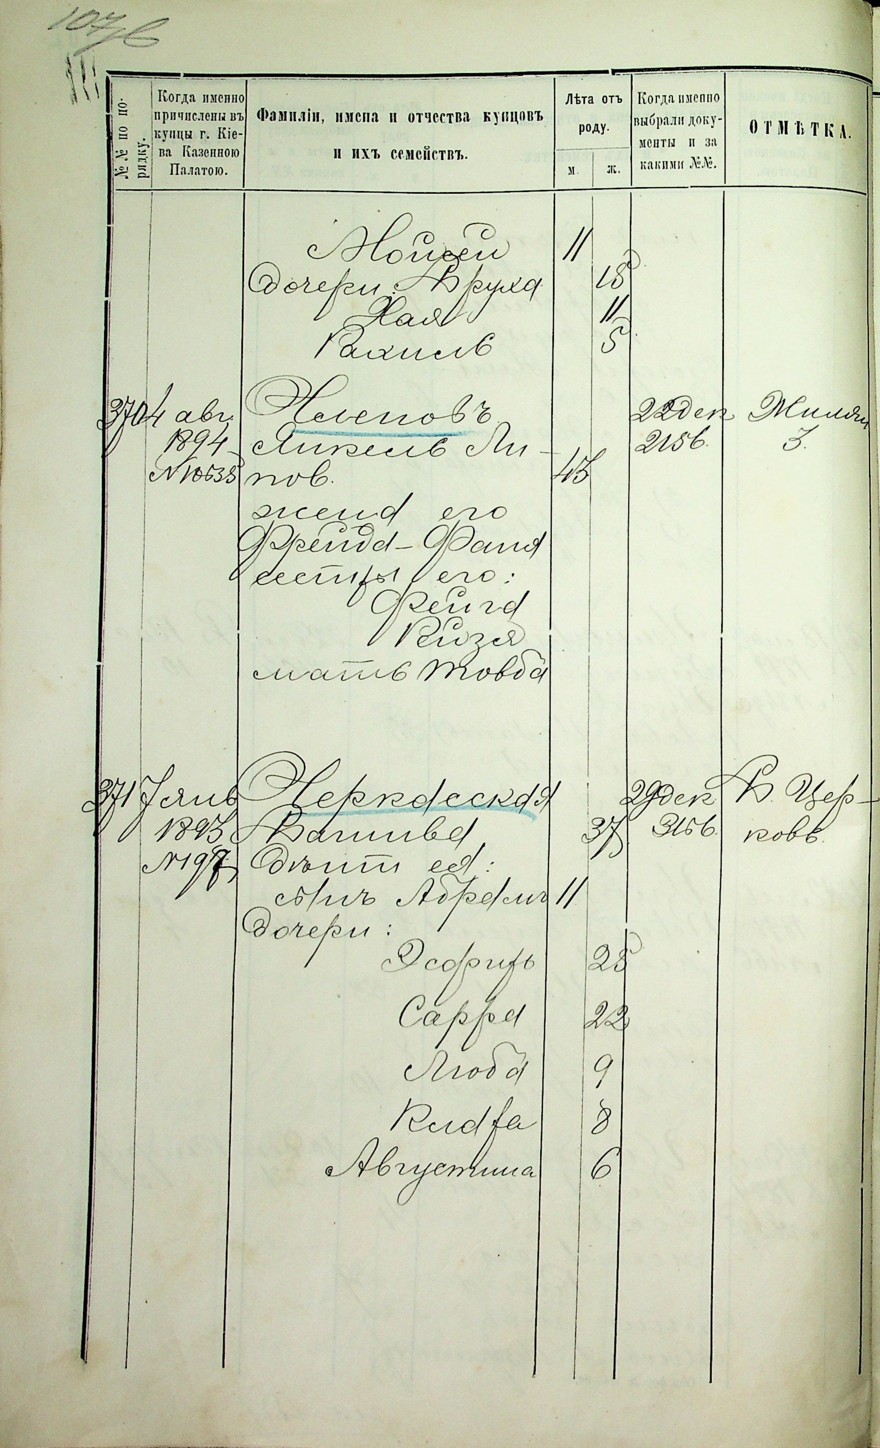 107 б
№№ по по-
рядку.
Когда именно
причислены въ
купцы г. Кіе-
ва Казенною
Палатою.
Фамиліи, имена и отчества купцовъ
и ихъ семействъ.
Лѣта отъ
роду.
м.
ж.
Когда именно
выбрали доку-
менты и за
какими №№.
ОТМѢТКА.
Мойсей 11
дочери: Бруха 18
Хая 11
Рахиль 5
370 4 авг. Членовъ 22 дек
1894 Янкель Ли- 2156.
пов. 43
жена его
Фрейда-Фаня
сестры его:
Фейга
Кизя
мать Товба
371 7 янв Черкасская 29 дек Б. Цер-
1893 Башива 37 3156. ковь.
№ 197 Дѣти ея:
сынъ Абрамъ 11
Дочери:
Эсфирь 25
Сарра 22
Люба 9
Клара 8
Августина 6